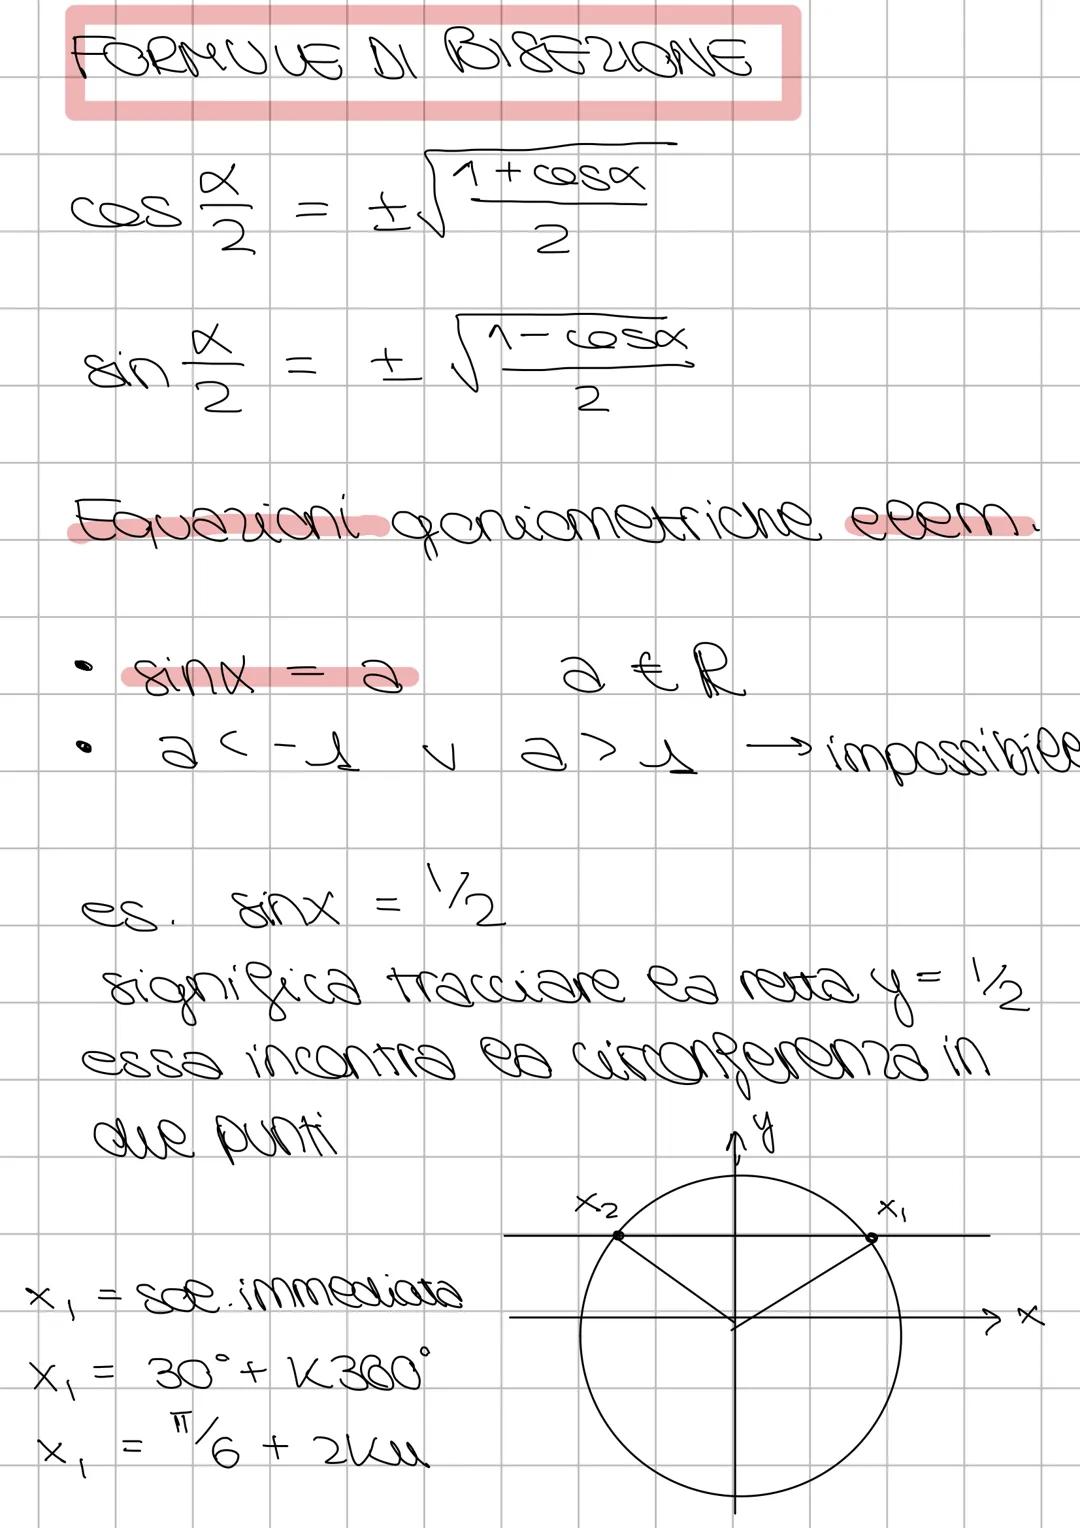 FORMULE DI BISEZIONE
cos α/2 = ±√(1+cosα)/2
sin α/2 = ±√(1-cosα)/2
Equazioni goniometriche elem.
• sinx = a a ∈ R
• a < -1 v a > 1 → impossibile
es. sinx = 1/2
significa tracciare la retta y = 1/2
essa incontra la circonferenza in
due punti
y
x₂ x₁
x₁ = sol. immediata
x
x₁ = 30° + K360°
x₁ = π/6 + 2Kπ